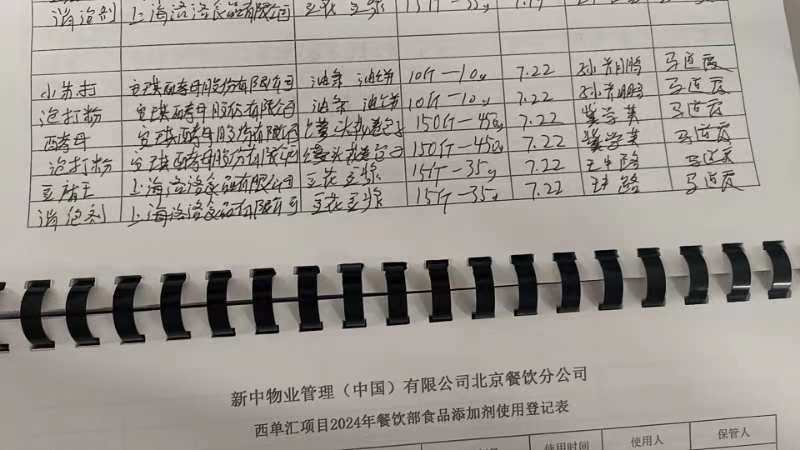 消泡剂 上海洛洛食品有限公司 豆花 豆浆 7.19
小苏打 安琪酵母股份有限公司 油条 油饼 10斤—10g 7.22 马
泡打粉 安琪酵母股份有限公司 油条 油饼 10斤—10g 7.22 马
酵母 安琪酵母股份有限公司 馒头花卷包子 150斤—450g 7.22 柴学英 马
泡打粉 安琪酵母股份有限公司 馒头花卷包子 150斤—450g 7.22 柴学英 马
豆腐王 上海洛洛食品有限公司 豆花豆浆 15斤—35g 7.22 马
消泡剂 上海洛洛食品有限公司 豆花豆浆 15斤—35g 7.22 马
新中物业管理（中国）有限公司北京餐饮分公司
西单汇项目2024年餐饮部食品添加剂使用登记表
使用时间 使用人 保管人